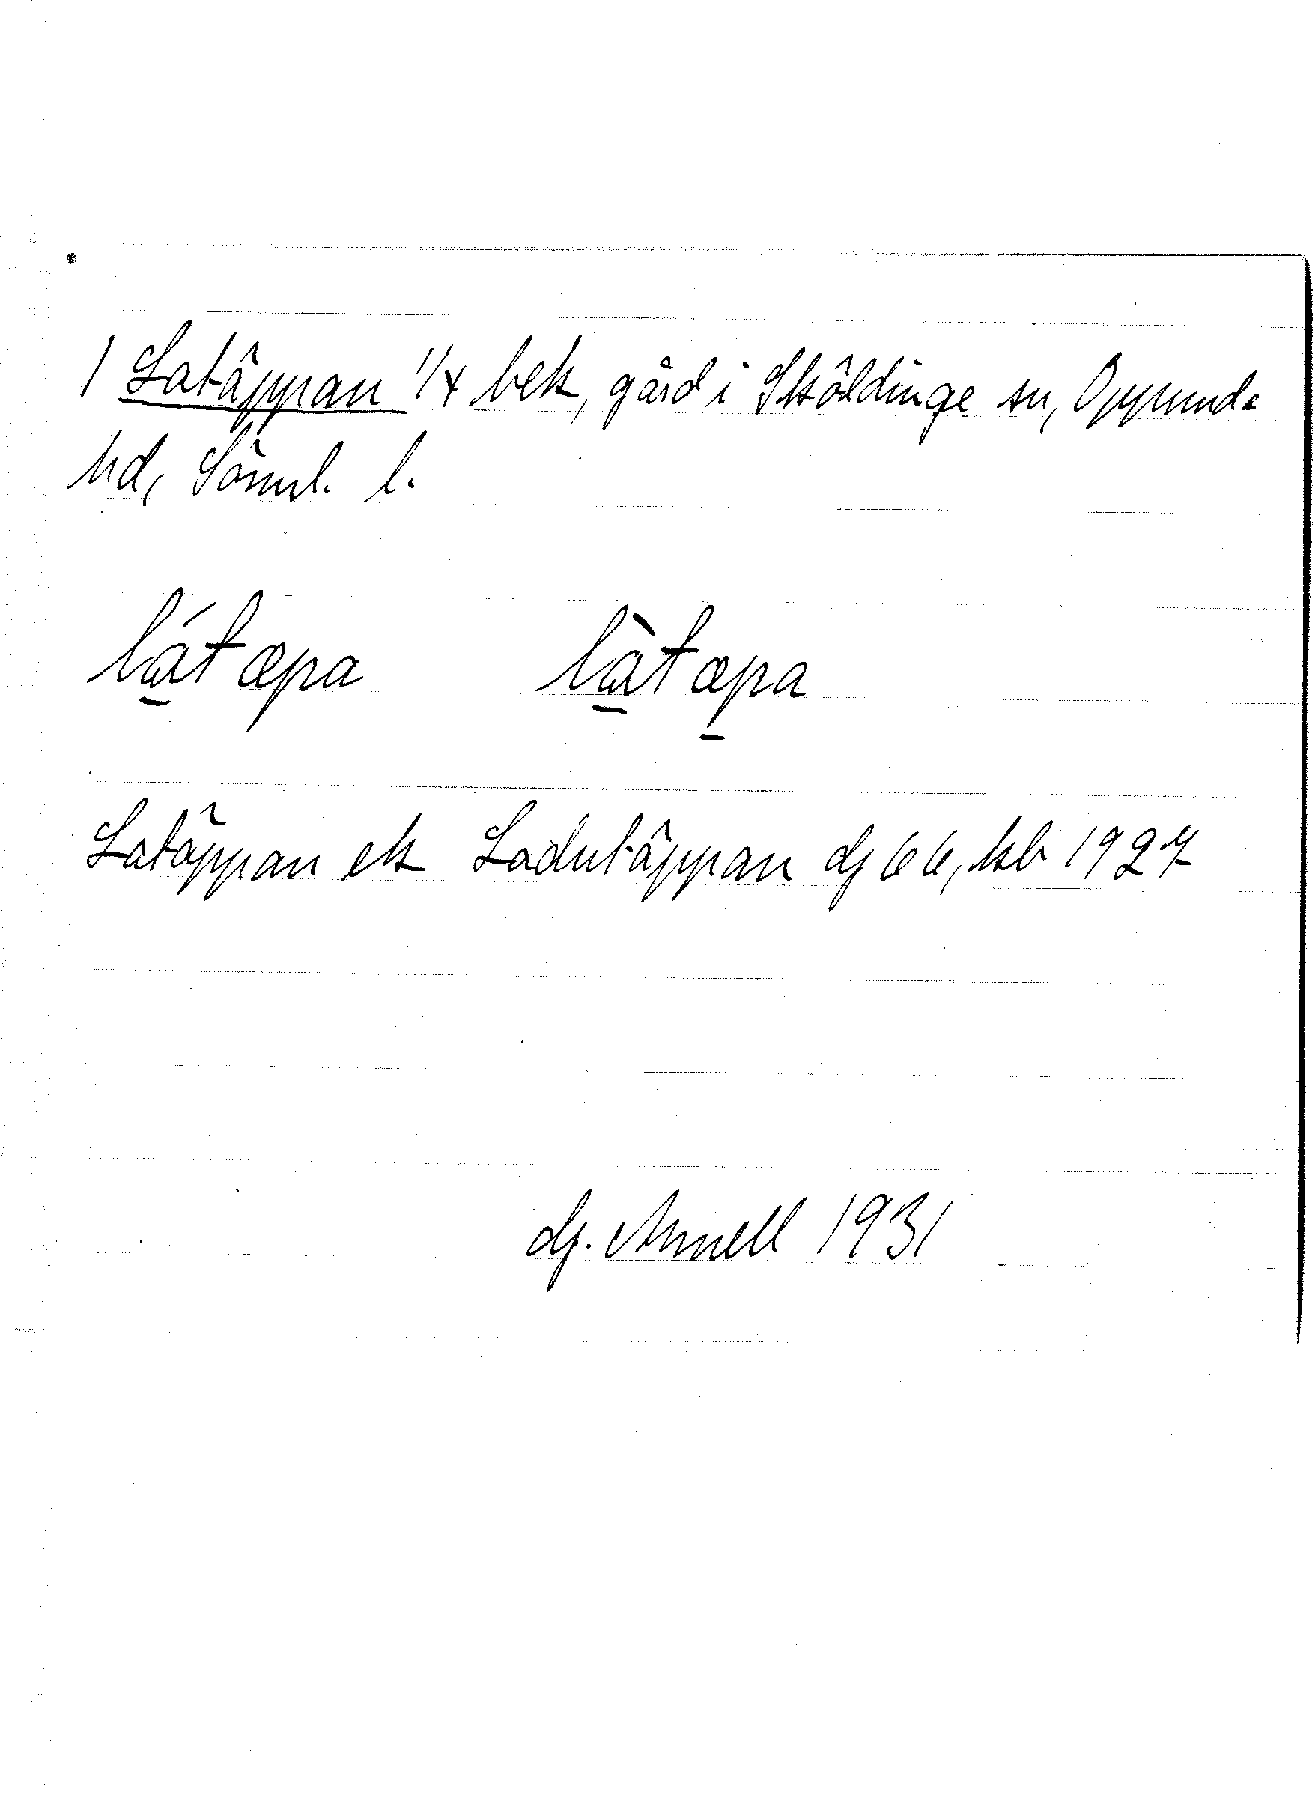 1 Latäppan 1/4 bek, gård i Sköldinge sn, Oppunda
hd, Söml. l.
látæpa làtæpa
Latäppan ek Ladutäppan dj 66, kb 1927
dj. Arnell 1931